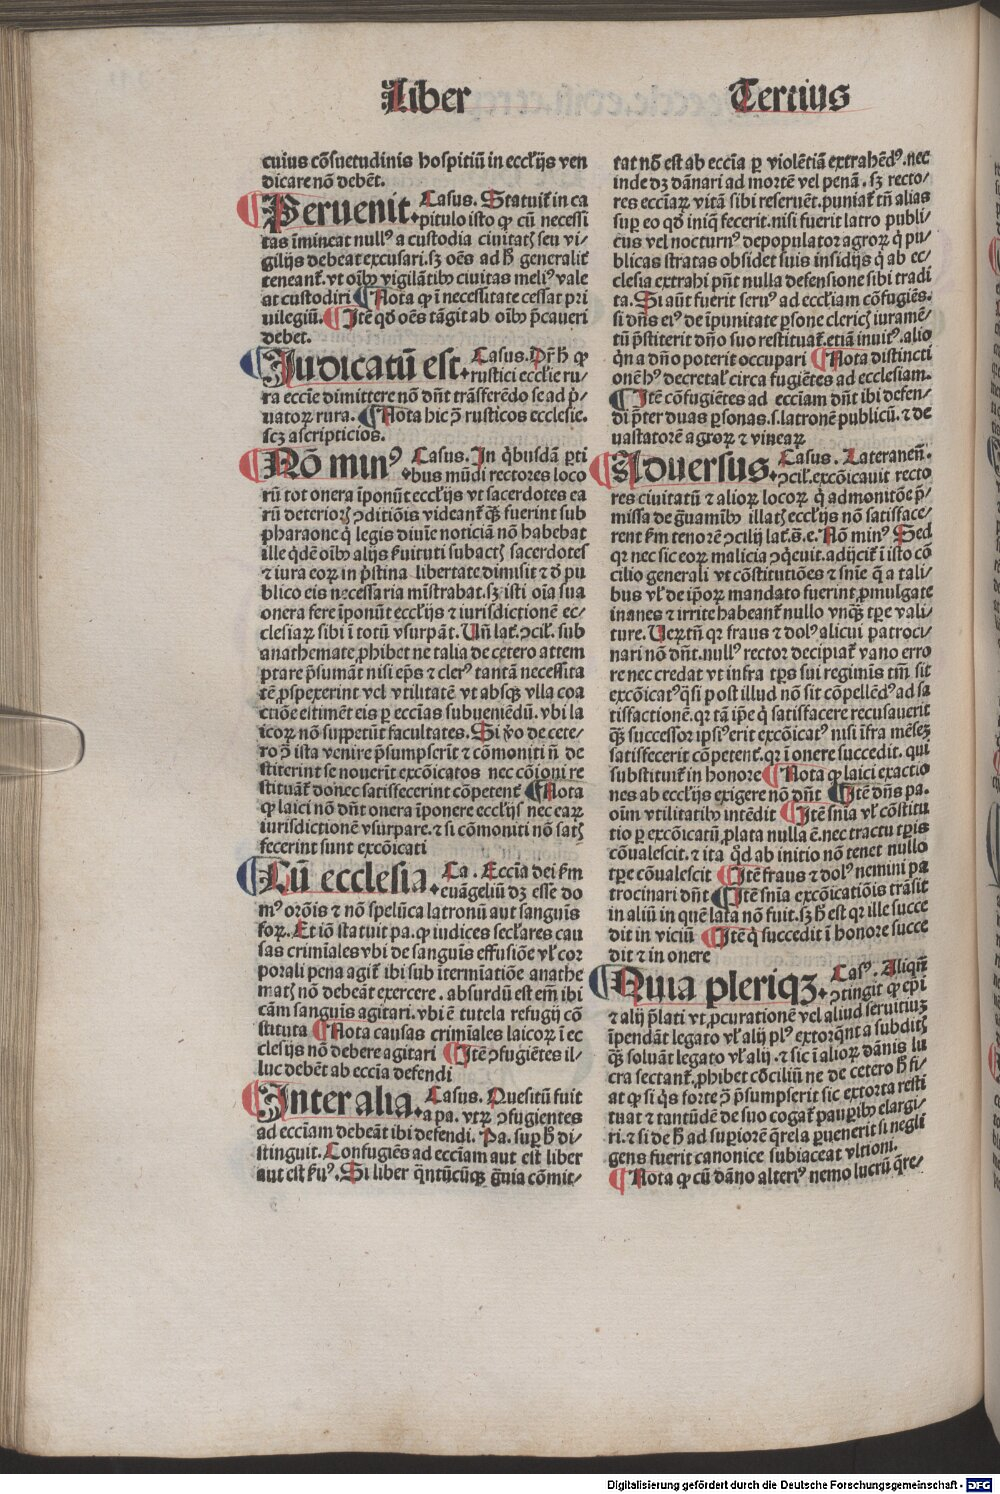 Liber Tertius
cuius cõsuetudinis hospitiũ in eccl'ijs ven
dicare nõ debẽt.
Peruenit. Casus. Statuit̃ in ca
pitulo isto ꝙ cũ necessi
tas ĩmineat nullꝰ a custodia ciuitatꝭ seu vi⸗
gilijs debeat excusari.sꝫ oẽs ad h̃ generalit̃
teneant̃.vt oĩbꝰ vigilãtibꝰ ciuitas meliꝰ vale
at custodiri Nota ꝙ ĩ necessitate cessat pri
uilegiũ. Itẽ qđ oẽs tãgit ab oĩbꝰ p̃caueri
debet.
Iudicatũ est. Casus. Pr̃ h̃ ꝙ
rustici eccl'ie ru⸗
ra ecc̃ie dimittere nõ dñt trãsferẽdo se ad p̃⸗
uatoꝝ rura. Nota hic ꝓ rusticos ecclesie.
scꝫ ascripticios.
Nõ minꝰ Casus. In q̃busdã ꝑti
bus mũdi rectores loco
rũ tot onera ĩponũt eccl'ijs vt sacerdotes ea
rũ deterioris ꝯditiõis videant̃ q̃ꝫ fuerint sub
pharaone q̃ legis diuĩe noticiã nõ habebat
ille q̃dẽ oĩbꝰ alijs s̃uituti subactꝭ sacerdotes
⁊ iura eoꝝ in p̃stina libertate dimisit ⁊ d̃ pu
blico eis necessaria mĩstrabat.sꝫ isti oĩa sua
onera fere ĩponũt eccl'ijs ⁊ iurisdictionẽ ec⸗
clesiaꝝ sibi ĩ totũ vsurpãt. Uñ lat̃. ꝯcil'. sub
anathemate ꝓhibet ne talia de cetero attem
ptare p̃sumãt nisi ep̃s ⁊ clerꝰ tantã necessita
tẽ ꝓspexerint vel vtilitatẽ vt absqꝫ vlla coa
ctiõe estiment eis ꝑ ecc̃ias subueniẽdũ.vbi la
icoꝝ nõ suppetũt facultates. Si ṽo de cete⸗
ro ꝯ̃ ista venire p̃sumpserĩt ⁊ cõmoniti ñ de
stiterint se nouerit excõicatos nec cõioni re
stituãt̃ donec satisfecerint cõpetent̃ Nota
ꝙ laici nõ dñt onera ĩponere eccl'ijs nec eaꝝ
iurisdictionẽ vsurpare.⁊ si cõmoniti nõ satꝭ
fecerint sunt excõicati
Cũ ecclesia. Ca. Ecc̃ia dei s̃m
euãgeliũ dꝫ esse do
mꝰ orõis ⁊ nõ spelũca latronũ aut sanguĩs
foꝝ. Et iõ statuit pa.ꝙ iudices secl'ares cau
sas crimĩales vbi de sanguĩs effusiõe vl' cor
porali pena agit̃ ibi sub ĩtermĩatiõe anathe
matꝭ nõ debeãt exercere. absurdũ est em̃ ibi
cãm sanguĩs agitari.vbi ẽ tutela refugij cõ
stituta Nota causas crimĩales laicoꝝ ĩ ec
clesijs nõ debere agitari Itẽ ꝯfugiẽtes il⸗
luc debẽt ab ecc̃ia defendi
Inter alia. Casus. Quesitũ fuit
a pa. vtꝝ ꝯfugientes
ad ecc̃iam debeãt ibi defendi. Pa. suꝑ h̃ di⸗
stinguit. Confugiẽs ad ecc̃iam aut est liber
aut est s̃uꝰ. Si liber q̃ntũcũqꝫ g̃uia cõmit⸗
tat nõ est ab ecc̃ia ꝑ violẽtiã extrahẽdꝰ.nec
inde dꝫ dãnari ad mortẽ vel penã. sꝫ recto⸗
res ecc̃iaꝝ vitã sibi reseruẽt.puniat̃ tñ alias
suꝑ eo qđ iniq̃ fecerit.nisi fuerit latro publi⸗
cus vel nocturnꝰ depopulator agroꝝ q̃ pu⸗
blicas stratas obsidet suis insidijs q̃ ab ec⸗
clesia extrahi pñt nulla defensione sibi tradi
ta. Si aũt fuerit seruꝰ ad eccl'iam cõfugiẽs.
si dñs eiꝰ de ĩpunitate ꝑsone clericis iuramẽ⸗
tũ p̃stiterit dño suo restituat̃.etiã inuitꝰ.alio
q̃n a dño poterit occupari Nota distincti
onẽ hꝰ decretal' circa fugiẽtes ad ecclesiam.
Itẽ cõfugiẽtes ad ecc̃iam dñt ibi defen⸗
di p̃ter duas ꝑsonas.s.latronẽ publicũ.⁊ de
uastatorẽ agroꝝ ⁊ vineaꝝ
Aduersus. Casus. Lateraneñ.
ꝯcil'.excõicauit recto
res ciuitatũ ⁊ alioꝝ locoꝝ q̃ admonitõe p̃⸗
missa de g̃uamĩbꝰ illatꝭ eccl'ijs nõ satisface⸗
rent s̃m tenorẽ ꝯcilij lat̃.s̃.e. Nõ minꝰ Sed
qꝛ nec sic eoꝝ malicia ꝯq̃euit.adijcit̃ ĩ isto cõ
cilio generali vt cõstitutiões ⁊ snĩe q̃ a tali⸗
bus vl' de ip̃oꝝ mandato fuerint ꝓmulgate
inanes ⁊ irrite habeant̃ nullo vnq̃ꝫ tp̃e vali⸗
ture. Ueꝝtñ qꝛ fraus ⁊ dolꝰ alicui patroci⸗
nari nõ dñt.nullꝰ rector decipiat̃ vano erro
re nec credat vt infra tp̃s sui regimĩs tm̃ sit
excõicatꝰ q̃si post illud nõ sit cõpellẽdꝰ ad sa
tisfactionẽ.qꝛ tã ip̃e q̃ satisfacere recusauerit
q̃ꝫ successor ipsiꝰ erit excõicatꝰ nisi ĩfra mẽseꝫ
satisfecerit cõpetent̃.qꝛ ĩ onere succedit. qui
substituit̃ in honore Nota ꝙ laici exactio
nes ab eccl'ijs exigere nõ dñt Itẽ dñs pa.
oĩm vtilitatibꝰ intẽdit Itẽ snĩa vl' cõstitu
tio ꝑ excõicatũ ꝓlata nulla ẽ.nec tractu tꝑis
cõualescit.⁊ ita q̃d ab initio nõ tenet nullo
tp̃e cõualescit Itẽ fraus ⁊ dolꝰ nemini pa
trocinari dñt Itẽ snĩa excõicatiõis trãsit
in aliũ in quẽ lata nõ fuit.sꝫ h̃ est qꝛ ille succe
dit in viciũ Itẽ q̃ succedit ĩ honore succe
dit ⁊ in onere
Quia pleriqꝫ. Casꝰ. Aliqñ
ꝯtingit ꝙ ep̃i
⁊ alij p̃lati vt ꝓcurationẽ vel aliud seruitiuꝫ
ĩpendãt legato vl' alij plꝰ extorq̃nt a subditꝭ
q̃ꝫ soluãt legato vl' alij.⁊ sic ĩ alioꝝ dãnis lu
cra sectant̃.ꝓhibet cõciliũ ne de cetero h̃ fi⸗
at ꝙ si q̃s forte ꝯ̃ p̃sumpserit sic extorta resti
tuat ⁊ tantũdẽ de suo cogat̃ pauꝑibꝰ elargi⸗
ri.⁊ si de h̃ ad superiorẽ q̃rela ꝑuenerit si negli
gens fuerit canonice subiaceat vltioni.
Nota ꝙ cũ dãno alteriꝰ nemo lucrũ q̃re⸗
Digitalisierung gefördert durch die Deutsche Forschungsgemeinschaft - DFG